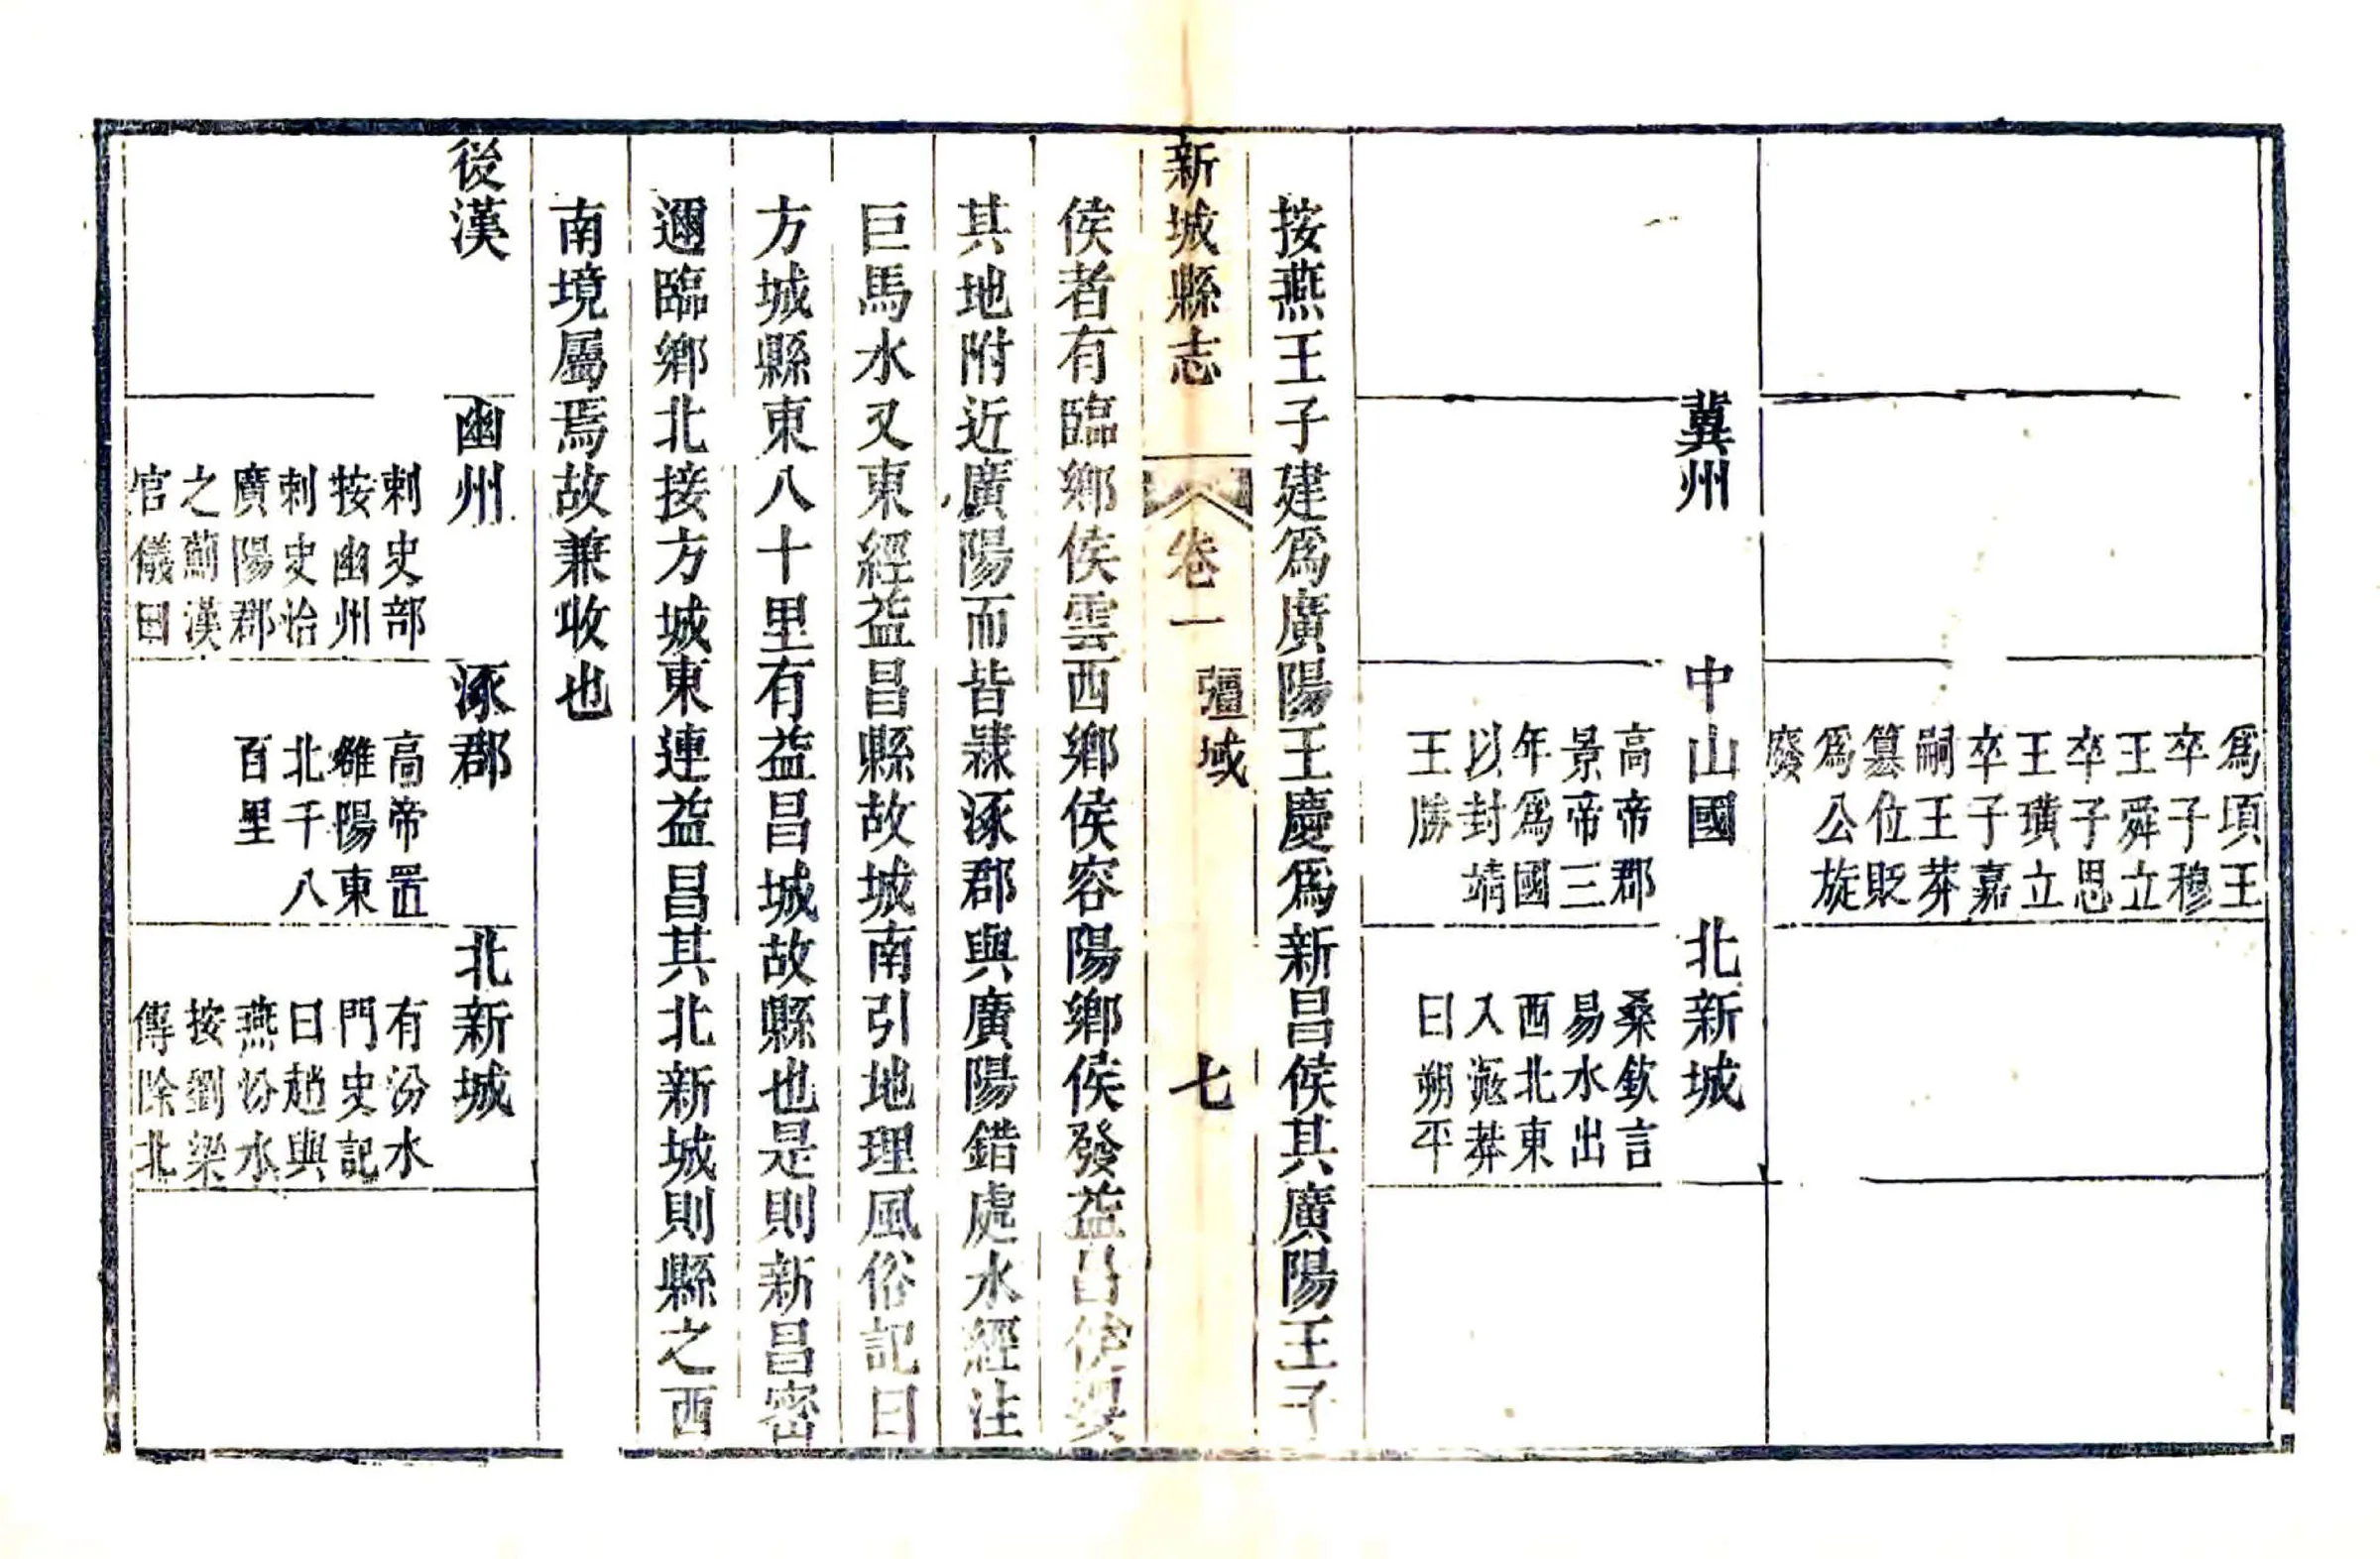 爲頃王
卒子穆
王舜立
卒子思
王璜立
卒子嘉
嗣王莽
篡位貶
爲公旋
廢
冀州
中山國
高帝郡
景帝三
年爲國
以封靖
王勝
北新城
桑欽言
易水出
西北東
入滱莽
曰朔平
按燕王子建爲廣陽王慶爲新昌侯其廣陽王子
新城縣志
卷一
疆域
七
侯者有臨鄉侯雲西鄉侯容陽鄉侯發益昌侯嬰
其地附近廣陽而皆隷涿郡與廣陽錯處水經注
巨馬水又東經益昌縣故城南引地理風俗記曰
方城縣東八十里有益昌城故縣也是則新昌密
邇臨鄉北接方城東連益昌其北新城則縣之西
南境屬焉故兼收也
後漢
幽州
刺史部
按幽州
刺史治
廣陽郡
之薊漢
官儀曰
涿郡
高帝置
雒陽東
北千八
百里
北新城
有汾水
門史記
曰趙與
燕汾水
按劉梁
傳除北